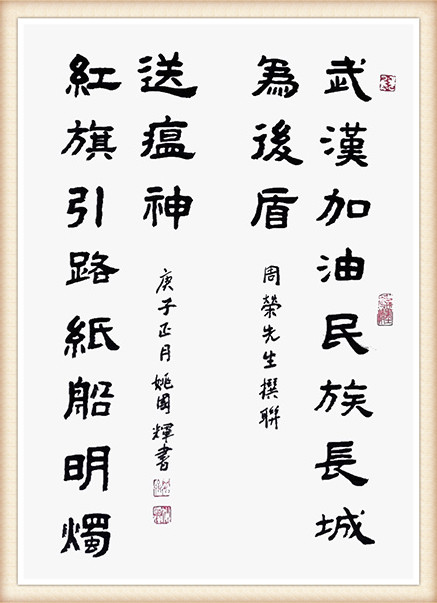 武漢加油民族長城
為後盾
周榮先生撰聯
紅旗引路紙船明燭
送瘟神
庚子正月姚國輝書